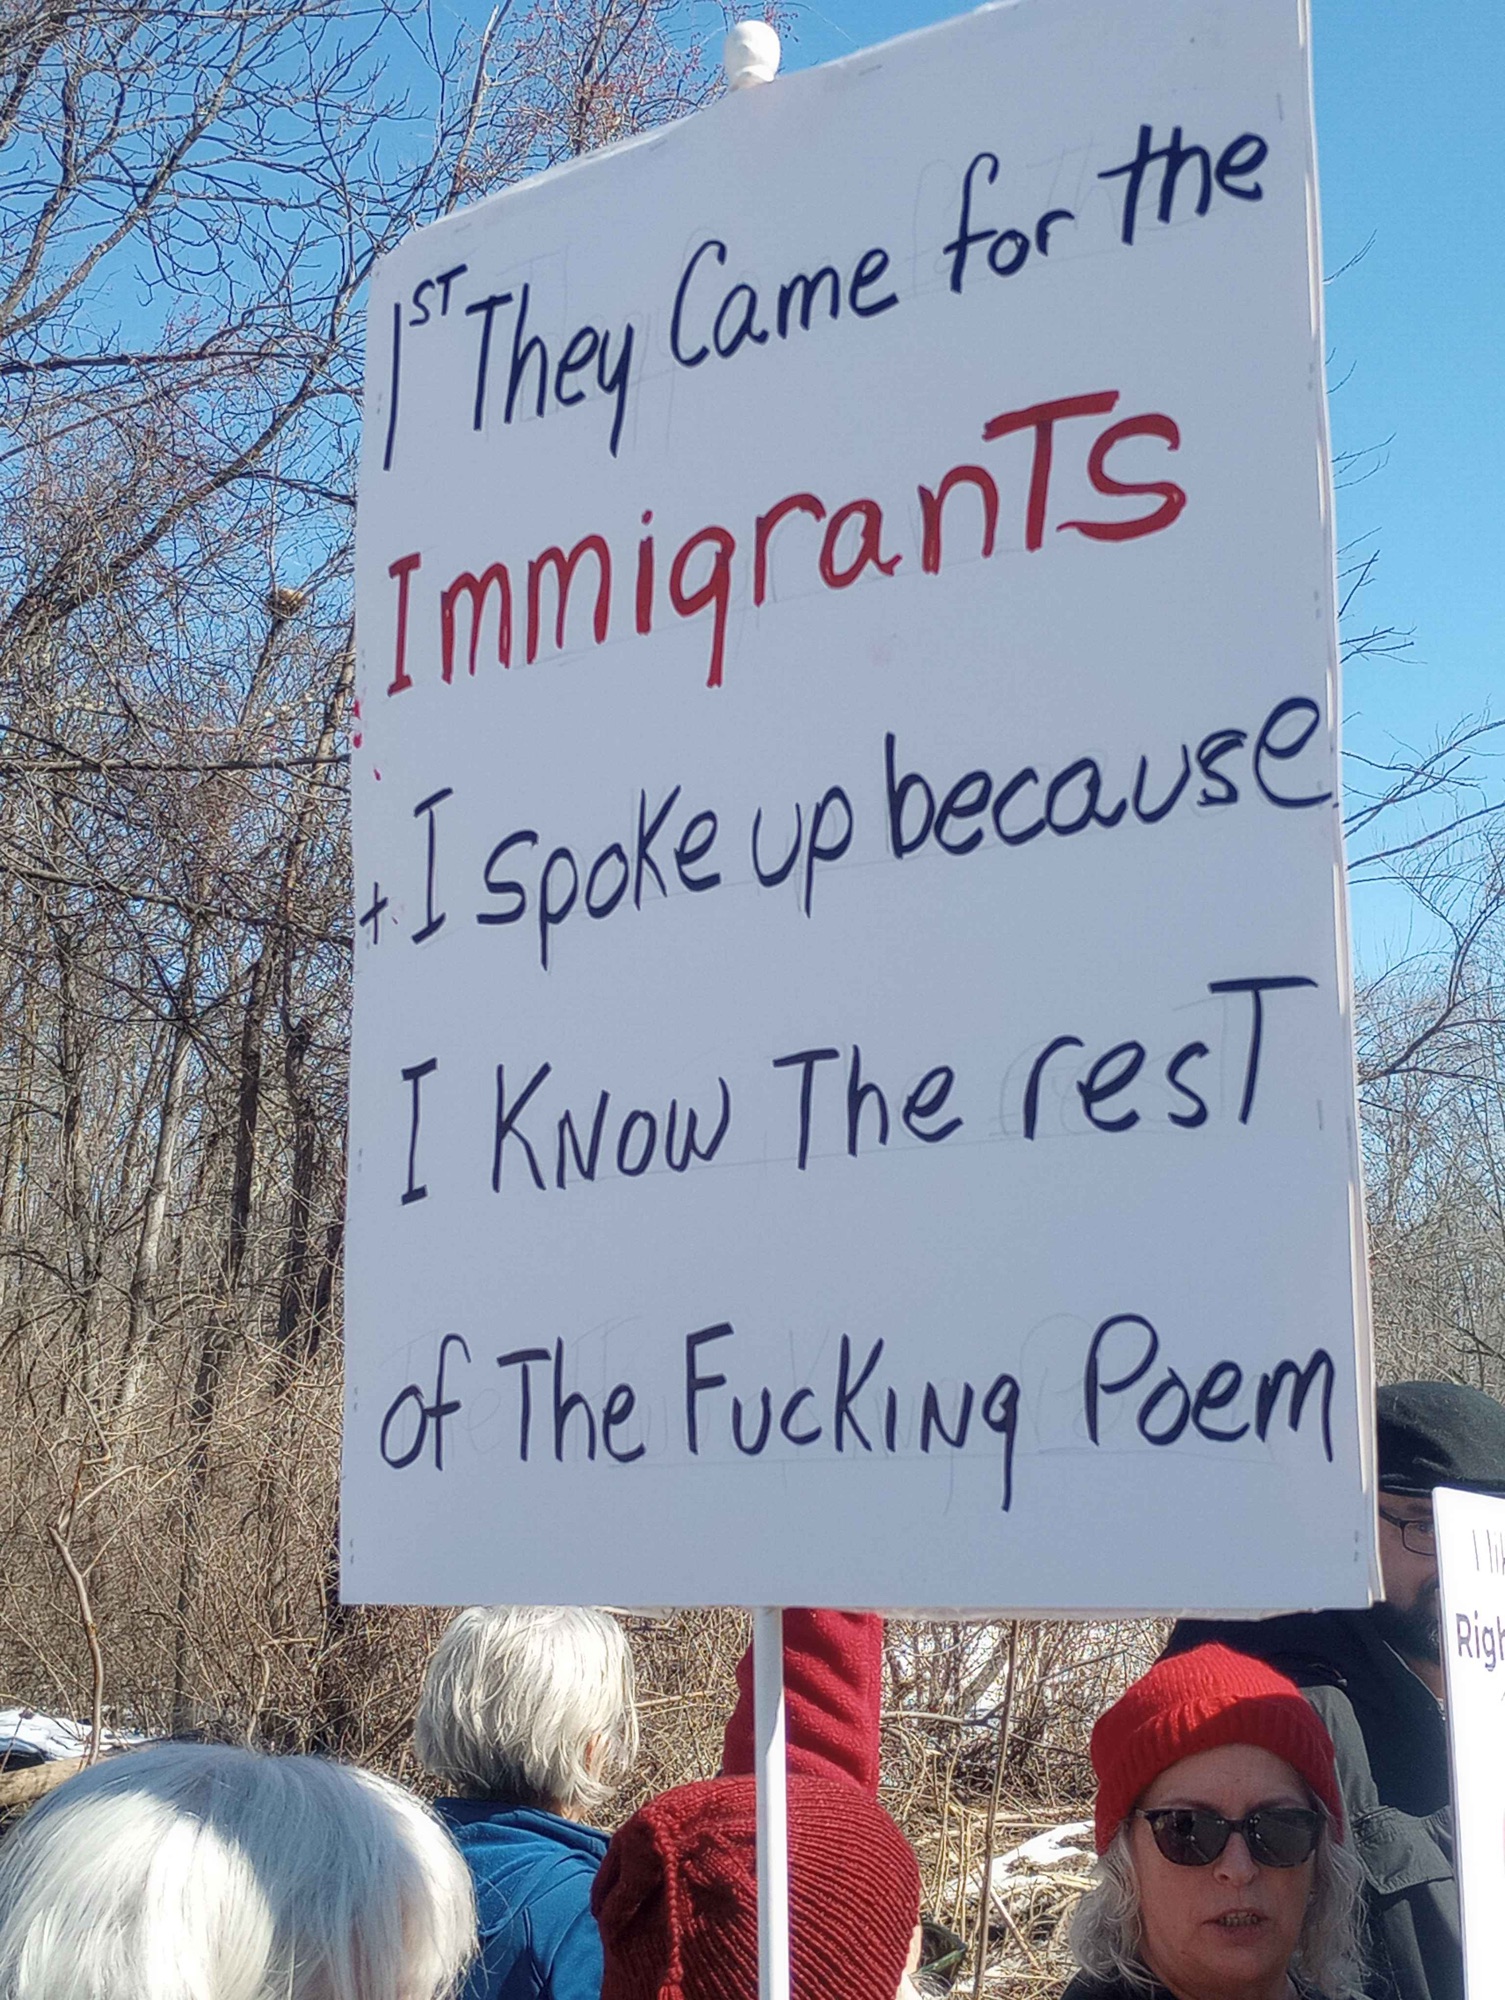 1ST They Came for the
ImmigranTs
+ I spoke up because
I KNOW The resT
of The FucKINg Poem